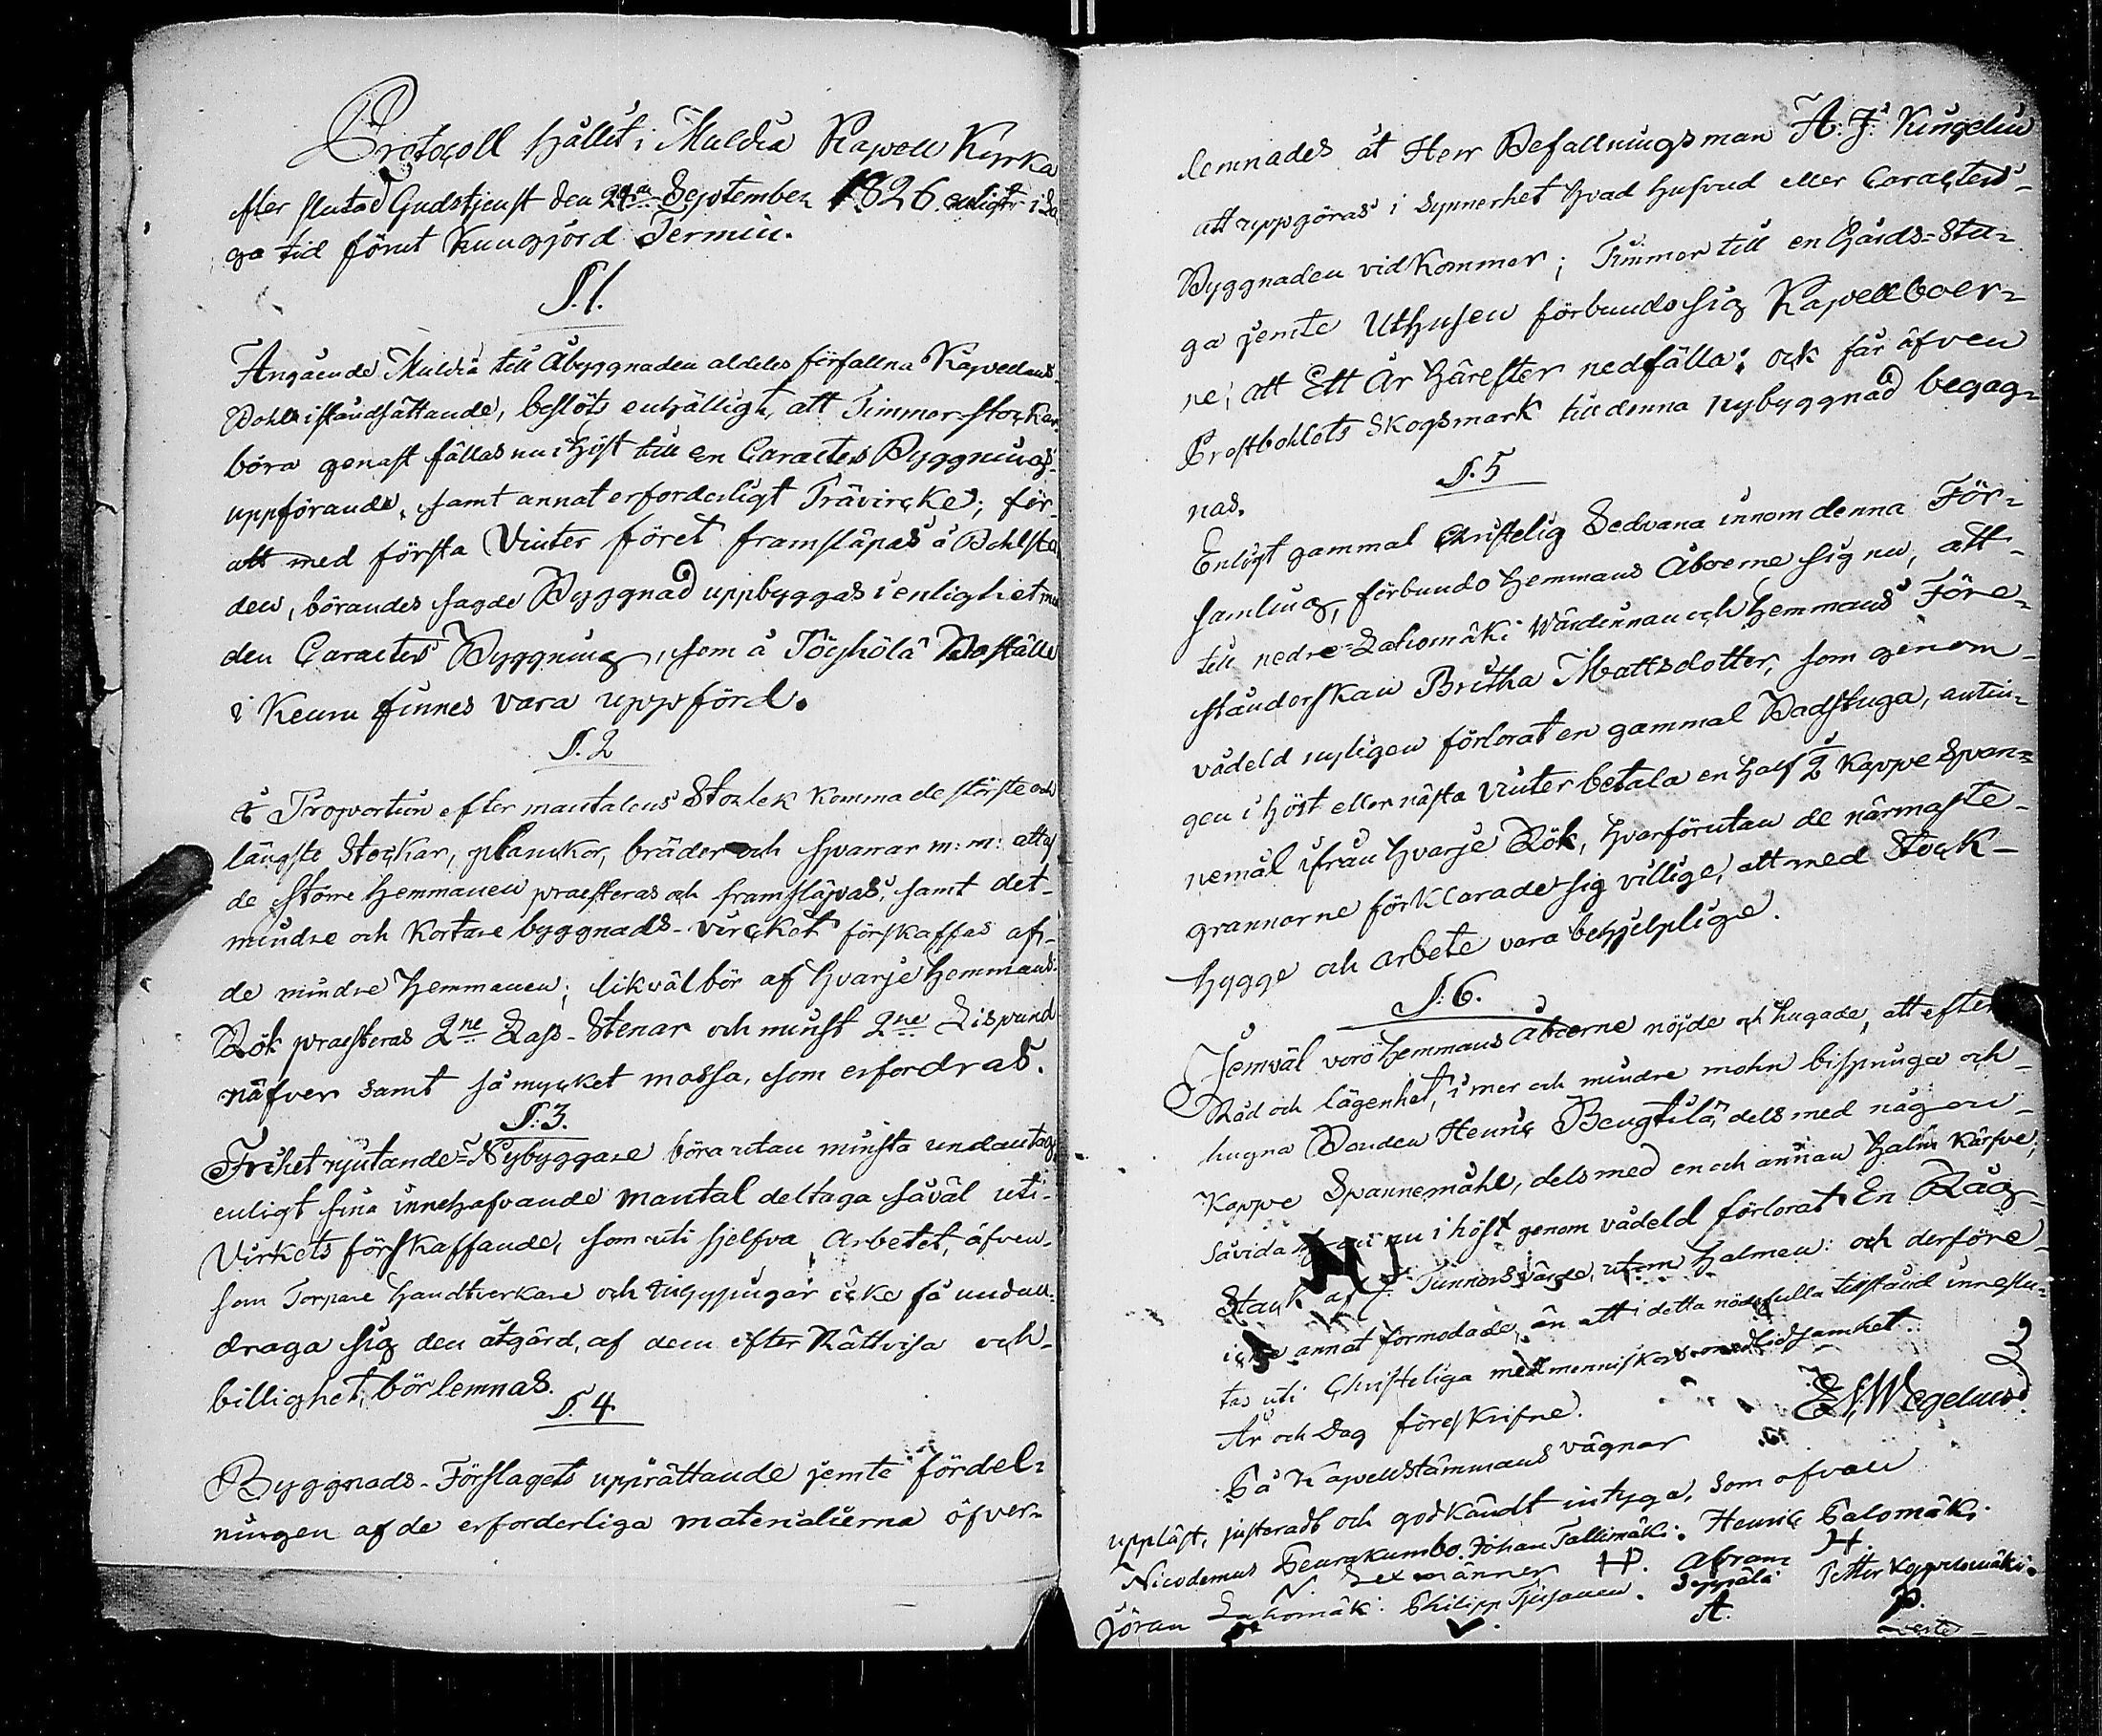 Protocoll hållit i Muldia Kapell Kyrka
efter slutad Gudstjenst den 24de September 1826 enligt i La
ga tid förut Kungjord Termin.
§. 1.
Angående Muldia till Åbyggnaden aldeles förfallna Kapellans-
Bohls iståndsättande, beslöts enhälligt, att Timmer-stockar
böra genast fällas nu i höst till en Caracters Byggnings-
uppförande, samt annat erforderligt Trävircke; för
att med första Vinter föret framsläpas å Bohlsta
den, börandes sagde Byggnad uppbyggas i enlighet med
den Caracters Byggning, som å Töyhölä Boställe
i Keuru finnes vara uppförd.
§. 2
I Proportion efter mantalens Storlek komma de största och
längste Stockar, planckor, bräder och sparrar m: m: att af
de större Hemmanen praesteras och framsläpas, samt det
mindre och kortare byggnads-vircket förskaffas af
de mindre Hemmanen; likväl bör af hvarje Hemmans-
Rök praesteras 2ne Lass-Stenar och minst 2ne Lispund
näfver samt så mycket mossa, som erfordras.
§. 3.
Frihet njutande-Nybyggare böra utan minsta undantag
enligt sina innehafvande mantal deltaga såväl uti
Virkets förskaffande, som uti sjelfva Arbetet, äfven
som Torpare Handtverkare och Inhysingar icke få undan-
draga sig den åtgärd, af dem efter Rättvisa och
billighet, bör lemnas.
§. 4.
Byggnads-Förslagets upprättande jemte fördel-
ningen af de erforderliga materialierna öfver-
lemnades åt Herr Befallningsman A. J. Kingelin
att uppgöras i synnerhet hvad hufvud eller Caracters-
Byggnaden vidkommer; Timmer till en Gårds-Stu-
ga jemte Uthusen förbundo sig Kapellboer-
ne, att Ett År härefter nedfälla: och får äfven
Prestbohlets Skogsmark till denna nybyggnad begag-
nas.
§. 5
Enligt gammal Christelig Sedvana innom denna För-
samling, förbundo Hemmans Åboerne sig nu, att
till nedre-Lahomäki Wärdinnan och Hemmans Före-
ståndorskan Britha Mattsdotter, som genom
vådeld nyligen förlorat en gammal Badstuga, antin-
gen i höst eller nästa Vinter betala en half ½ kappe Span-
nemål ifrån hvarje Rök, hvarförutan de närmaste
grannarne förklarade sig villige, att med Stock-
hygge och arbete vara behjelplige.
§. 6.
Jemväl voro Hemmans Åboerne nöjde och hugade, att efter
Råd och lägenhet, i mer och mindre mohn bispringa och
hugna Bonden Henric Bengtilä, dels med någon
Kappe Spannemåhl, dels med en och annan Halm Kärfve,
såvida han nu i höst genom vådeld förlorat En Råg-
Stack af 7 Tunnors värde, utom Halmen: och derföre
icke annat förmodade, än att i detta nödfulla tillstånd inneslu-
tas uti Christeliga medmenniskors medlidsamhet.
År och Dag föreskrifne.
E. N. Wegelius
På Kapellstämmans vägnar
uppläst, justeradt och godkändt intyga, som ofvan
Nicodemus Peurakumbo. Johan Tallimäki. Henric Palomäki.
N. Sexmänner H. H.
Jöran Lahomäki. Philipp . Abram Seppälä Petter Kopplomäki.
A. P.